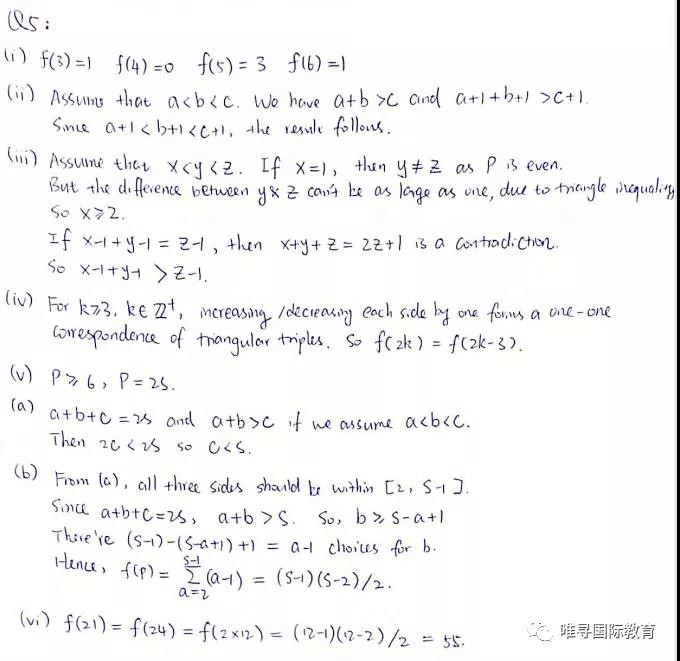 Q5:
(i) f(3)=1 f(4)=0 f(5)=3 f(6)=1
(ii) Assume that a<b<c. We have a+b>c and a+1+b+1>c+1.
Since a+1<b+1<c+1, the result follows.
(iii) Assume that x<y<z. If x=1, then y≠z as P is even.
But the difference between y & z can't be as large as one, due to triangle inequality
So x≥2.
If x-1+y-1=z-1, then x+y+z=2z+1 is a contradiction.
So x-1+y-1>z-1.
(iv) For k≥3, k∈ℤ⁺, increasing/decreasing each side by one forms a one-one
correspondence of triangular triples. So f(2k)=f(2k-3).
(v) P≥6, P=2S.
(a) a+b+c=2S and a+b>c if we assume a<b<c.
Then 2c<2S so c<S.
(b) From (a), all three sides should be within [2, S-1].
Since a+b+c=2S, a+b>S. So, b≥S-a+1
There're (S-1)-(S-a+1)+1=a-1 choices for b.
Hence, f(P)=∑_{a=2}^{S-1}(a-1)=(S-1)(S-2)/2.
(vi) f(21)=f(24)=f(2×12)=(12-1)(12-2)/2=55.
唯寻国际教育